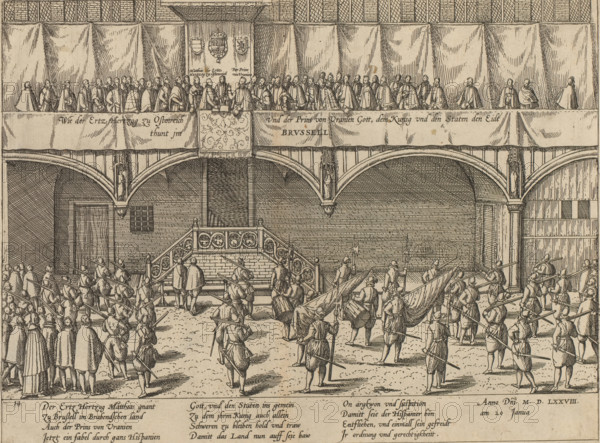 Wie der Ertz hertzog zu Osterreich
thunt jre
Vnd der Printz von Vranien Gott, dem Kunig vnd den Staten den Eidt
BRVSSELL
14
Der Ertz Hertzog Matthias gnant
Zu Brussell im Brabendschen land
Auch der Printz von Vranien
Jetzt ein fabel durch gantz Hispanien
Gott, vnd den Staten ins gemein
Zu dem jhrem Kunig auch allein
Schweren sy bleiben hold vnd traw
Damitt das Land nun auff seie baw
On argkwon vnd suspition
Damitt seie der Hispanier hon
Entflichen, vnd einmall sein gefreidt
Jr ordnung vnd gerechtigkeitt.
Anno Dni M. D. LXXVIII.
am 20 Januarij